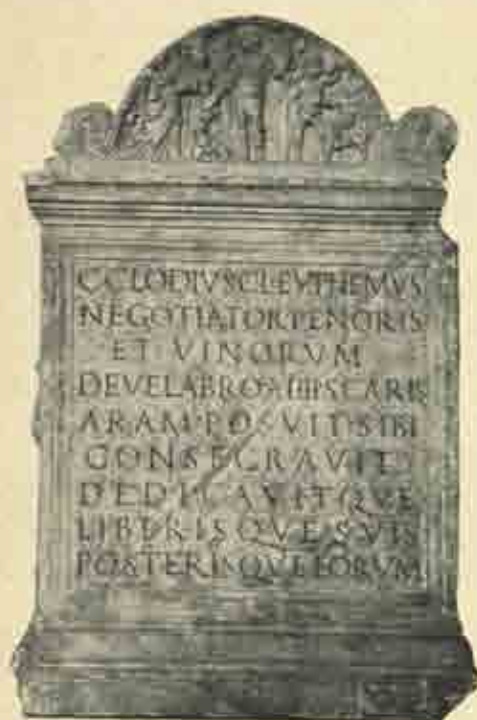 C·CLODIVS·C·L·EVPHEMVS
NEGOTIATOR·PENORIS
ET VINORVM
DE VELABRO·A·IIII·SCARIS
ARAM·POSVIT·SIBI
CONSECRAVIT
DEDICAVITQVE
LIBERISQVE SVIS
POSTERISQVE EORVM